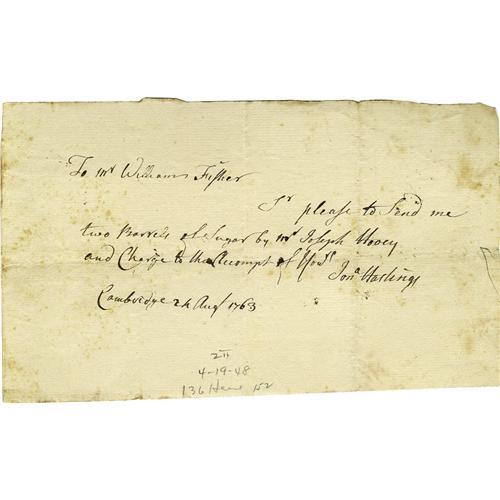 To Mr William Fisher
Sr please to Send me
two Barrels of Sugar by Mr Joseph Hovey
and Charge to the Accompt of Yours
Jona Hastings
Cambridge 24 Augt 1763
4-19-48
136
152